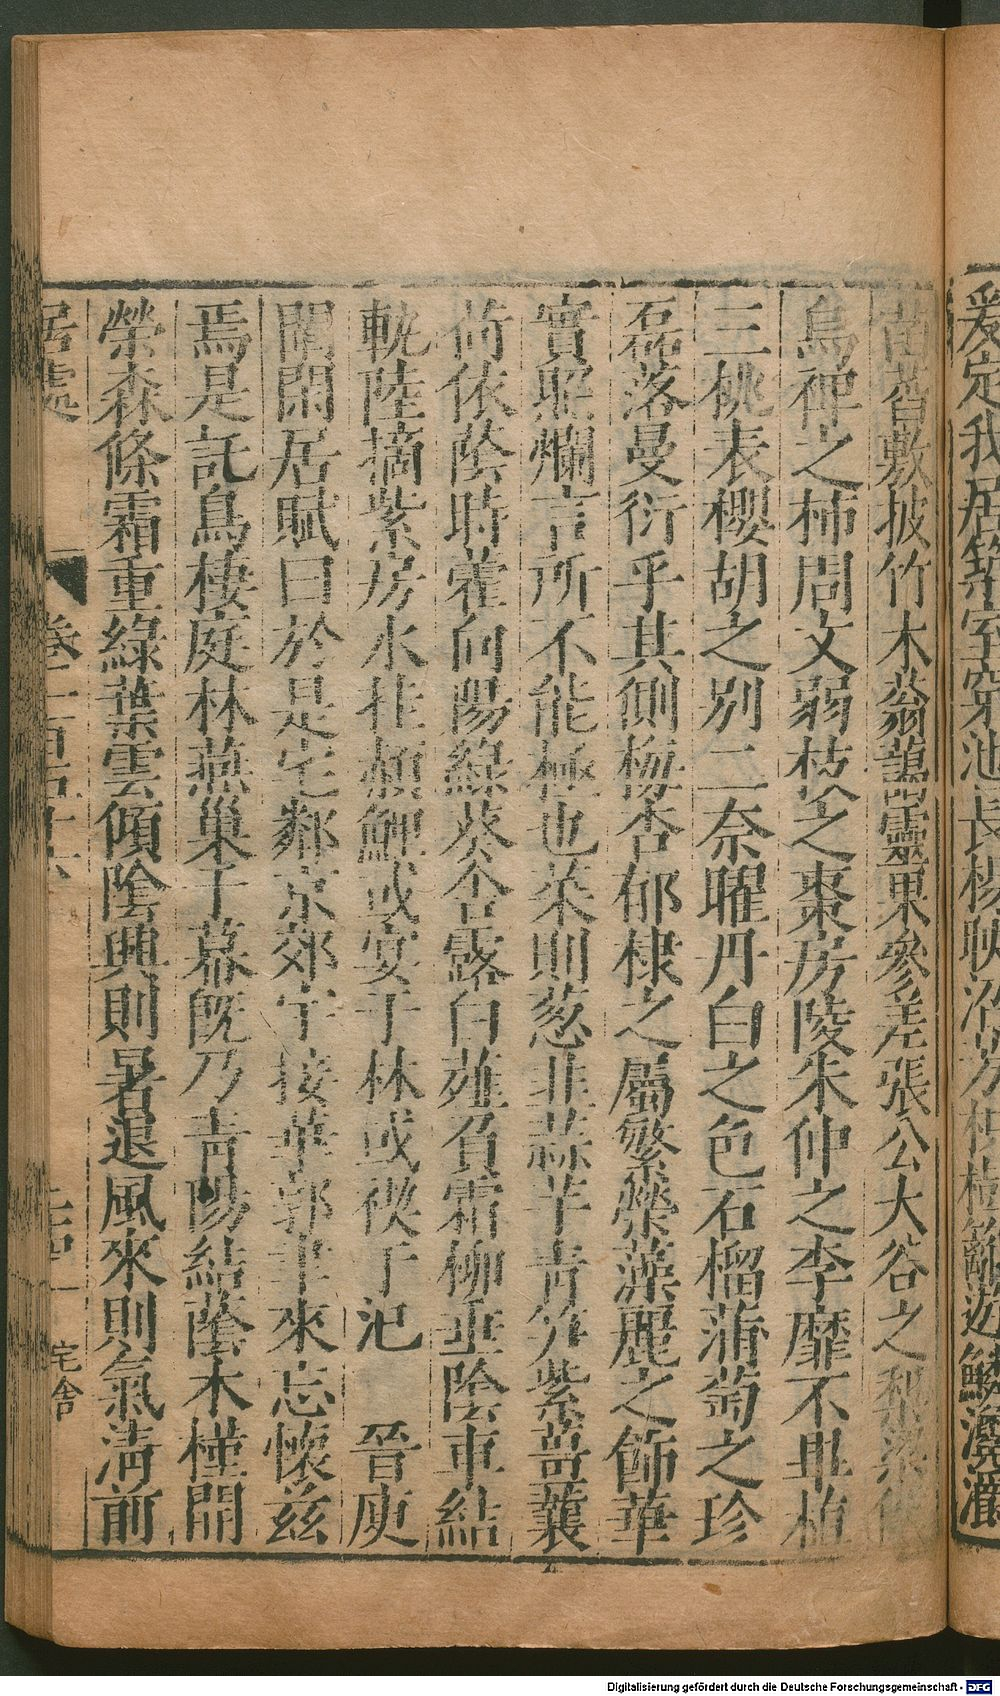 爰定我居築室穿池長楊映沼芳枳樹籬遊鱗瀺灂
菡萏敷披竹木蓊藹靈果參差張公大谷之梨梁侯
烏椑之柿周文弱枝之棗房陵朱仲之李靡不畢植
三桃表櫻胡之別二奈曜丹白之色石榴蒲萄之珍
磊落曼衍乎其側梅杏郁棣之屬繁榮藻麗之飾華
實照爛言所不能極也菜則葱韭蒜芋青笋紫薑蘘
荷依陰時藿向陽綠葵含露白薤負霜柳垂陰車結
軌陸摘紫房水挂赬鯉或宴于林或禊于汜 晉庾
闡閑居賦曰於是宅鄰京郊宇接華郭聿來忘懷茲
焉是託鳥棲庭林燕巢于幕既乃青陽結蔭木槿開
榮森條霜重綠葉雲傾陰興則暑退風來則氣清前
居處 卷一百四十六 宅舍
Digitalisierung gefördert durch die Deutsche Forschungsgemeinschaft - DFG